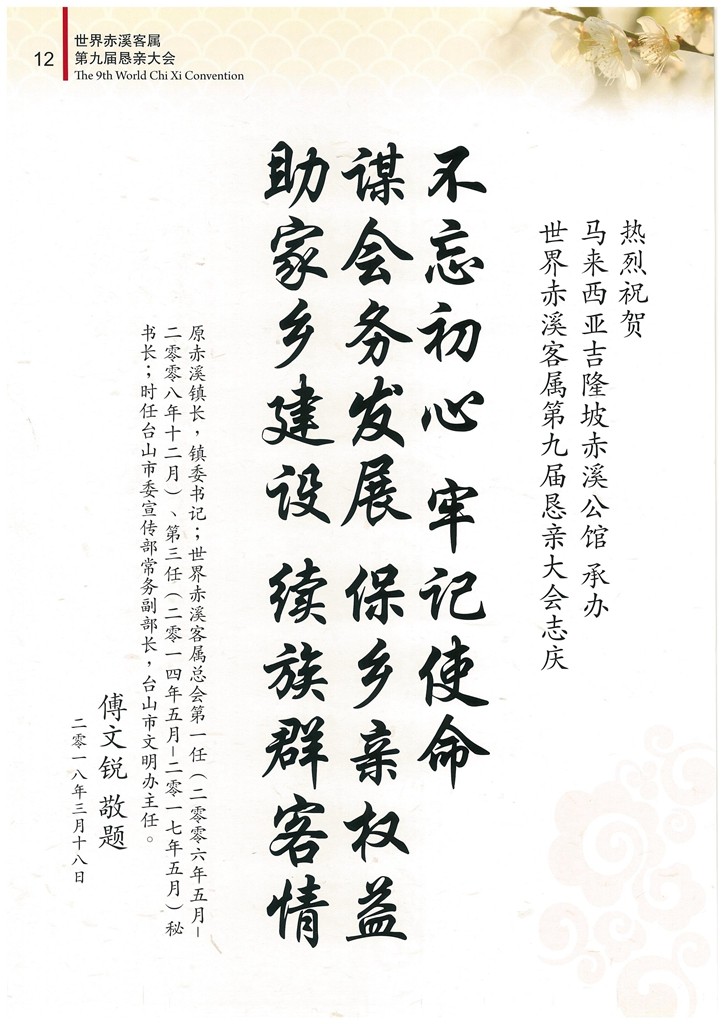 12
世界赤溪客属
第九届恳亲大会
The 9th World Chi Xi Convention
热烈祝贺
马来西亚吉隆坡赤溪公馆 承办
世界赤溪客属第九届恳亲大会志庆
不忘初心 牢记使命
谋会务发展 保乡亲权益
助家乡建设 续族群客情
原赤溪镇长，镇委书记；世界赤溪客属总会第一任（二零零六年五月－
二零零八年十二月）、第三任（二零一四年五月－二零一七年五月）秘
书长；时任台山市委宣传部常务副部长，台山市文明办主任。
傅文锐 敬题
二零一八年三月十八日